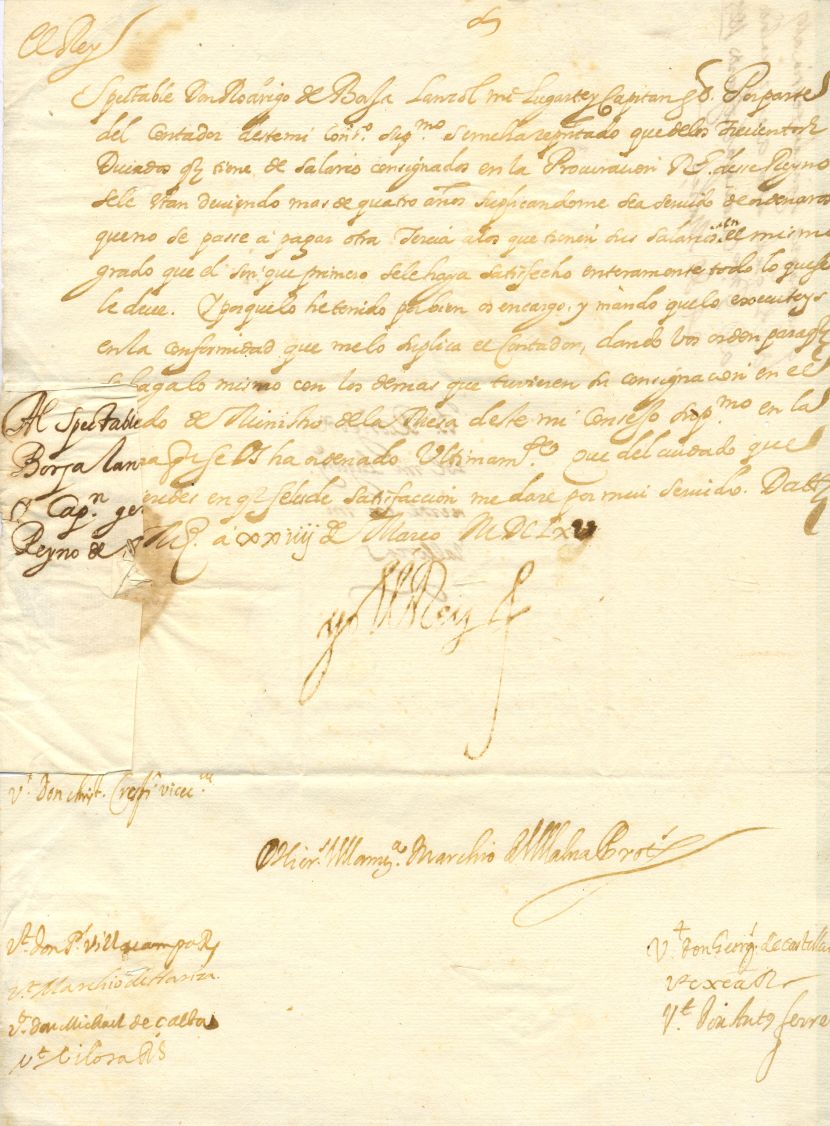 El Rey
Spectable Don Rodrigo de Borja Lanzol mi Lugarty Capitan Gl. Por parte
del Contador deste mi Cons.º Sup.mo se me ha repñtado que de los trecientos
Ducados que tiene de salario consignados en la Procuracion Rl. desse Reyno
se le estan deviendo mas de quatro años suplicandome sea servido de ordenaros
que no se passe a pagar otra Tercia a los que tienen sus salarios en el mismo
grado que el sin que primero se le haya satisfecho enteramente todo lo que se
le deve. Y porque lo he tenido por bien os encargo, y mando que lo executeys
en la conformidad que me lo suplica el Contador, dando vos orden para q
se haga lo mismo con los demas que tuvieren su consignacion en el
do de Ministro de la Mesa deste mi Consejo Sup.mo en la
ra q se os ha ordenado Ultimam.te Que del cuidado que
en q se le de satisfaccion me dare por mui servido. Datt.
a xxviiij de Março MDCLxv
Al Spectable
Borja Lanz
y Cap.n ge
Reyno de
yo el Rey
V.t Don christ. Crespi vicec.
Marchio Prot.s
V.t don P.s Villacampa R
V.t Marchio de Hariza
V.t don Michael de Çalba
V.t R
V.t Don Georg. de Castellui
V.t exea R
V.t Don Ant.s ferre